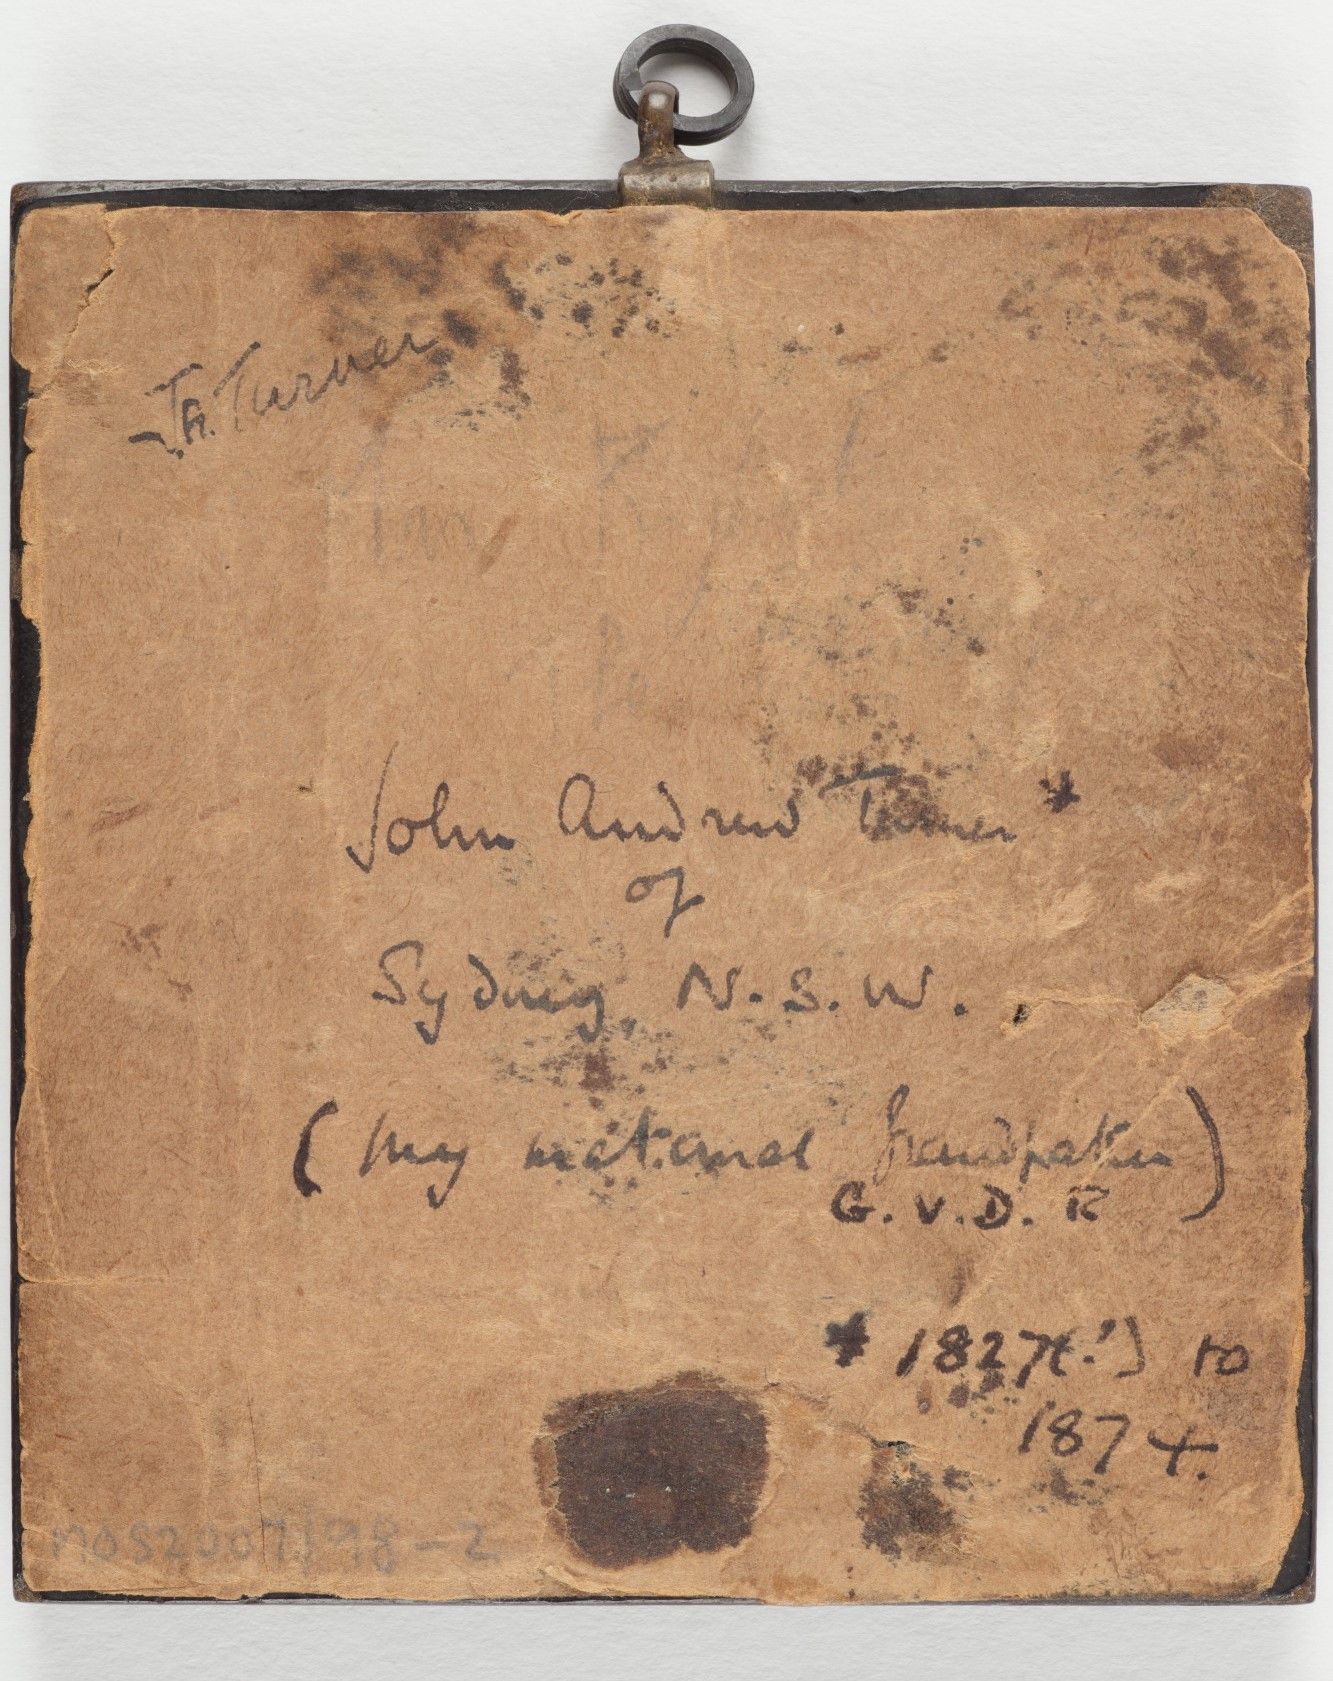 Turner
John Andrew Turner *
of
Sydney, N.S.W.
(my maternal Grandfather)
G.V.D.R
* 1827(?) to
1874.
MOS2007/98-2